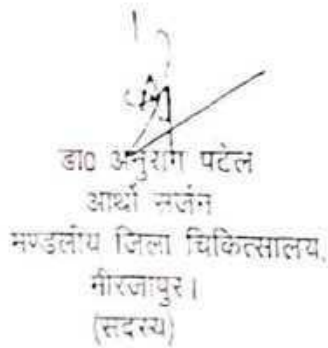 डा0 अनुराग पटेल
आर्थो सर्जन
मण्डलीय जिला चिकित्सालय,
मीरजापुर।
(सदस्य)